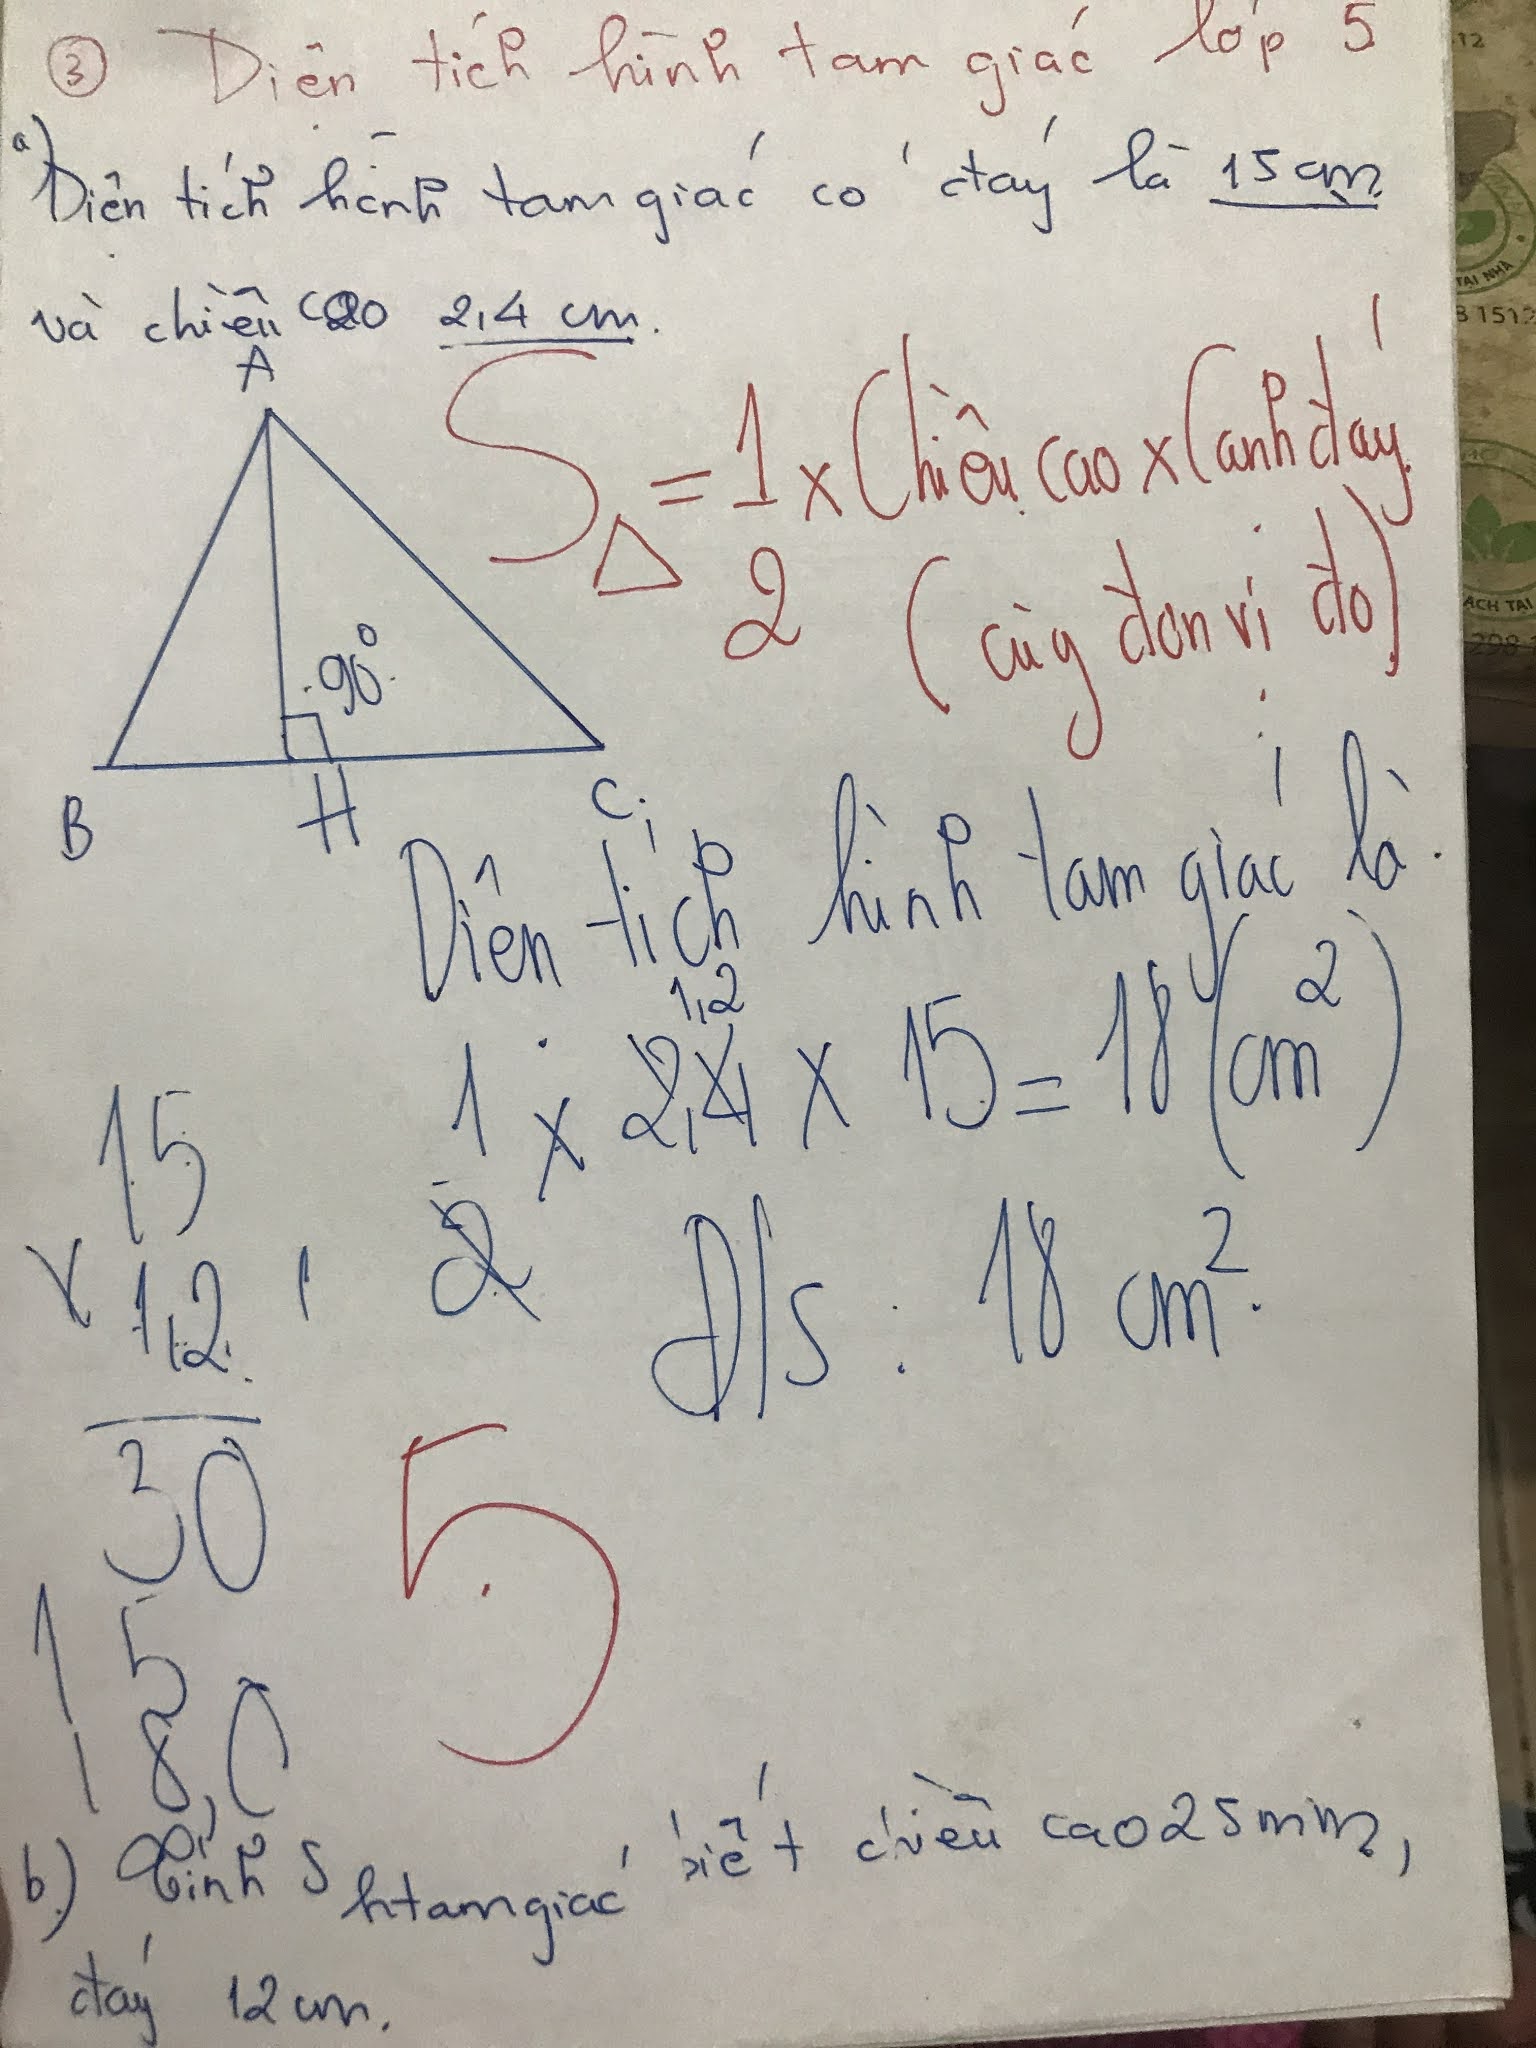 ③ Diện tích hình tam giác lớp 5
a) Diện tích hình tam giác có đáy là 15 cm
và chiều cao 2,4 cm.
A
S△ = 1 x Chiều cao x Cạnh đáy
2 (cùng đơn vị đo)
90°
B H C
Diện tích hình tam giác là.
1,2
1 x 2,4 x 15 = 18 (cm²)
2
Đ/S: 18 cm².
15
x 1,2
30
15
18,0
5
b) Tính S htam giác biết chiều cao 25mm,
đáy 12 cm.
12
TẠI NHÀ
8 1512
ÁCH TẠI
298